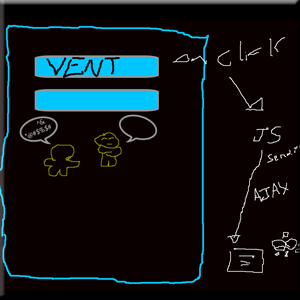 VENT
click
JS
Send
AJAX